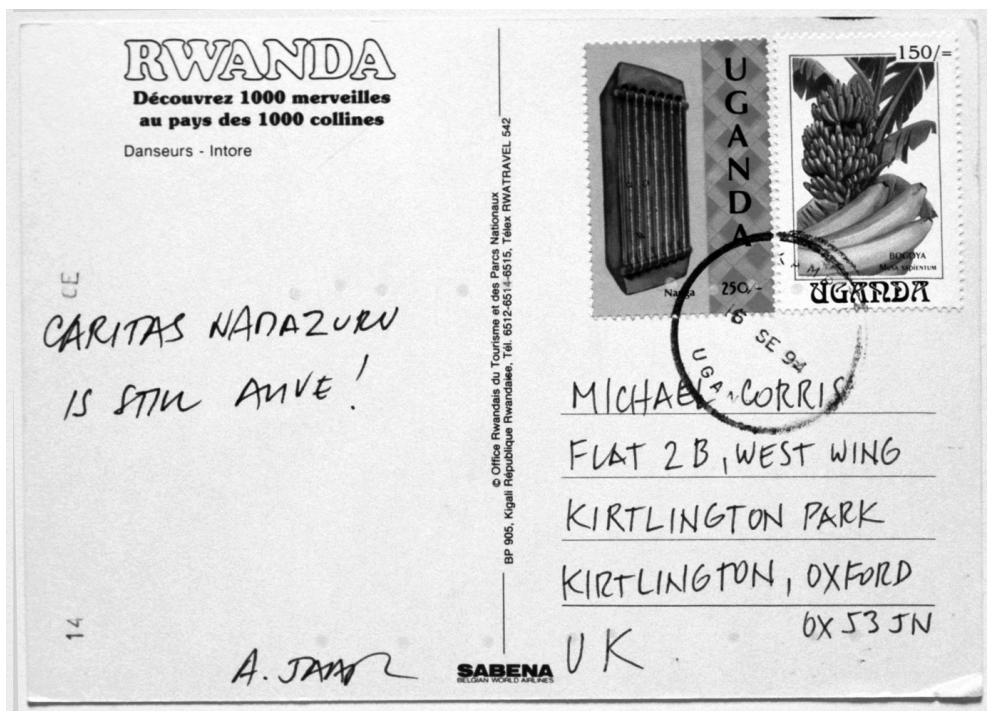 RWANDA
Découvrez 1000 merveilles
au pays des 1000 collines
Danseurs - Intore
CE
CARITAS NAMAZURU
IS STILL ALIVE!
14
A. JAAR
© Office Rwandais du Tourisme et des Parcs Nationaux
BP 905, Kigali République Rwandaise, Tél. 6512-6514-6515, Télex RWATRAVEL 542
SABENA
BELGIAN WORLD AIRLINES
UGANDA
Nanga
250/-
150/=
BOGOYA
MUSA SAPIENTUM
UGANDA
6 SE 94
UGAN
MICHAEL CORRIS
FLAT 2B, WEST WING
KIRTLINGTON PARK
KIRTLINGTON, OXFORD
OX5 3JN
UK